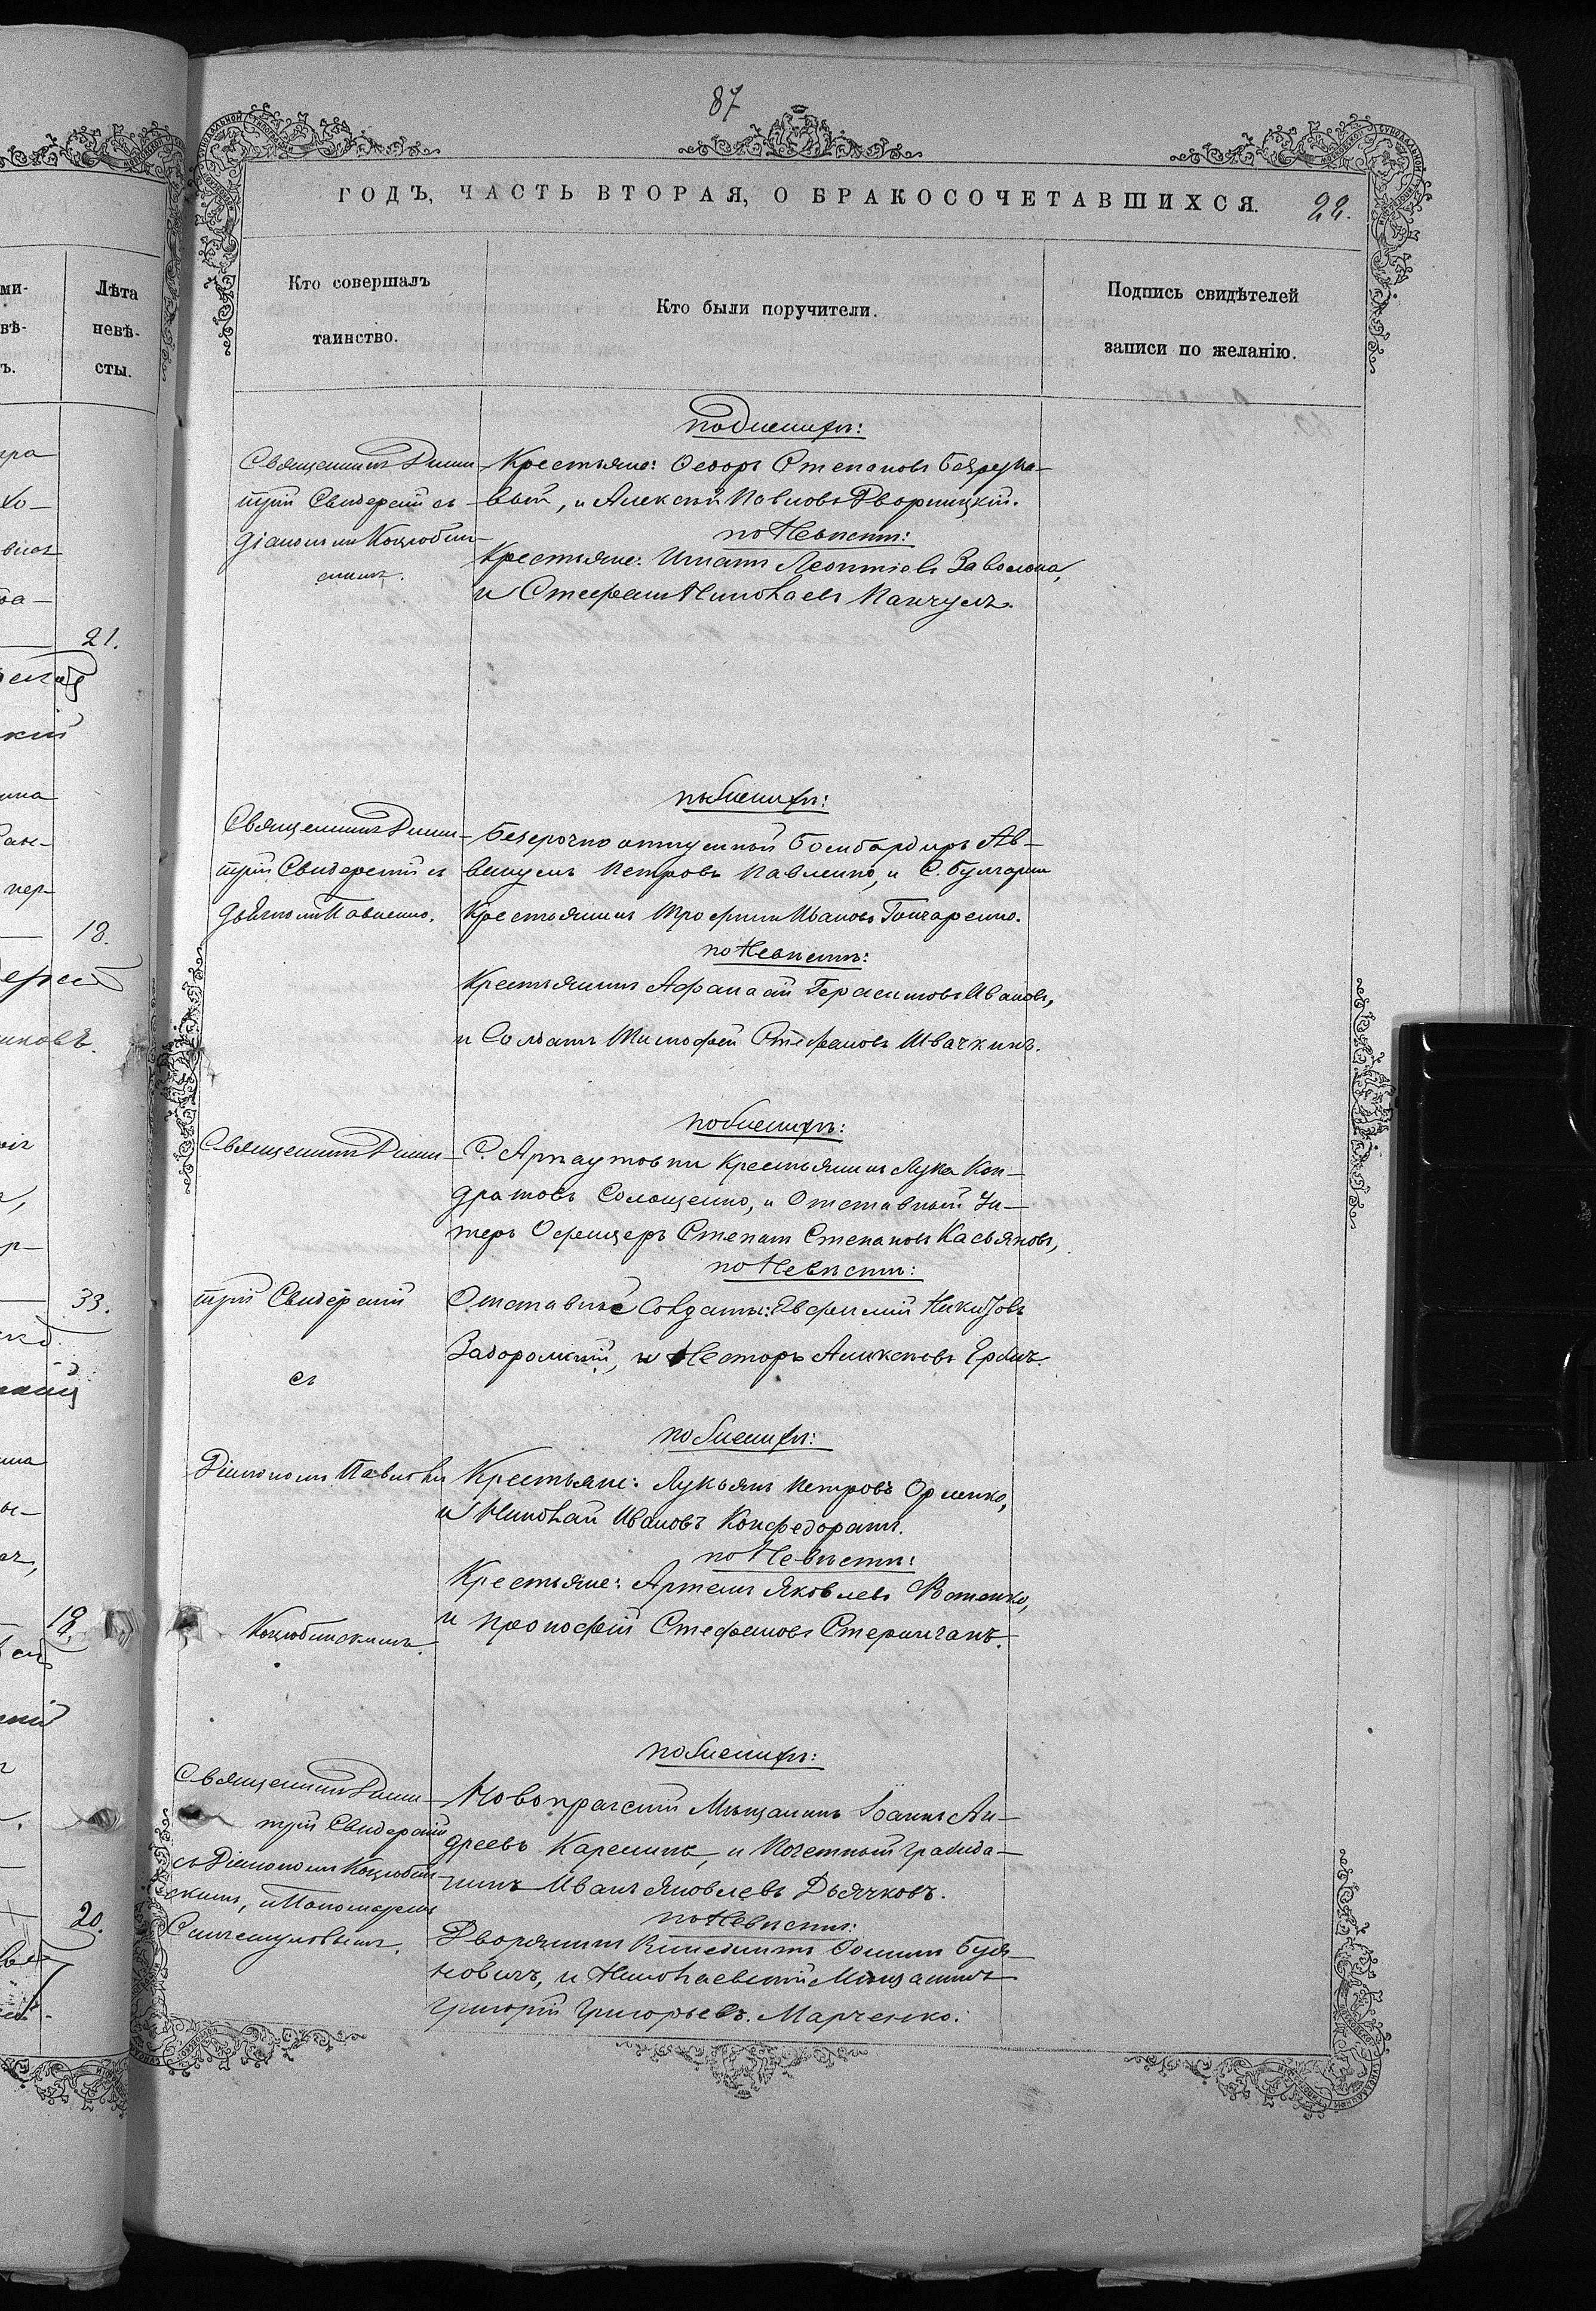 87
ГОДЪ, ЧАСТЬ ВТОРАЯ, О БРАКОСОЧЕТАВШИХСЯ. 22.
Лѣта
невѣ-
сты.
Кто совершалъ
таинство.
Кто были поручители.
Подпись свидѣтелей
записи по желанію.
21.
18.
33.
18.
20.
по Женихѣ:
Священникъ Дими-
трій Свидерскій съ
діакономъ Коцюбин-
скимъ.
Крестьяне: Ѳеодоръ Степановъ Безрука-
вый, и Алексѣй Павловъ Дворницкій.
по Невѣстѣ:
Крестьяне: Игнатъ Леонтіевъ Заволока,
и Стефанъ Николаевъ Панчулъ.
по Женихѣ:
Священникъ Дими-
трій Свидерскій съ
дьячкомъ Павленко.
Безсрочно отпускной Бомбардиръ Ав-
вакумъ Петровъ Павленко, и С. Булгарки
Крестьянинъ Трофимъ Ивановъ Гончаренко.
по Невѣстѣ:
Крестьянинъ Афанасій Герасимовъ Ивановъ,
и Солдатъ Тимофей Стефановъ Ивачкинъ.
по Женихѣ:
Священникъ Дими-
трій Свидерскій
съ
С. Арнаутовки Крестьянинъ Лука Кон-
дратовъ Солощенко, и Отставный Ун-
теръ Офицеръ Степанъ Степановъ Касьяновъ,
по Невѣстѣ:
Отставные Солдаты: Евфимій Никитовъ
Задорожній, и Несторъ Алексѣевъ
по Женихѣ:
Діакономъ
Коцюбинскимъ.
Крестьяне: Лукьянъ Петровъ Орленко,
и Николай Ивановъ Конфедоратъ.
по Невѣстѣ:
Крестьяне: Артемъ Яковлевъ
и Прокофій Стефановъ
по Женихѣ:
Священникъ Дими-
трій Свидерскій
съ Діакономъ Коцюбин-
скимъ, и Пономаремъ
Новопражскій Мѣщанинъ Іоаннъ Ан-
дреевъ Карелинъ, и Почетный Гражда-
нинъ Иванъ Яковлевъ Дьячковъ.
по Невѣстѣ:
Дворянинъ Викентій Осиповъ Буя-
новичъ, и Николаевскій Мѣщанинъ
Григорій Григорьевъ Марченко.